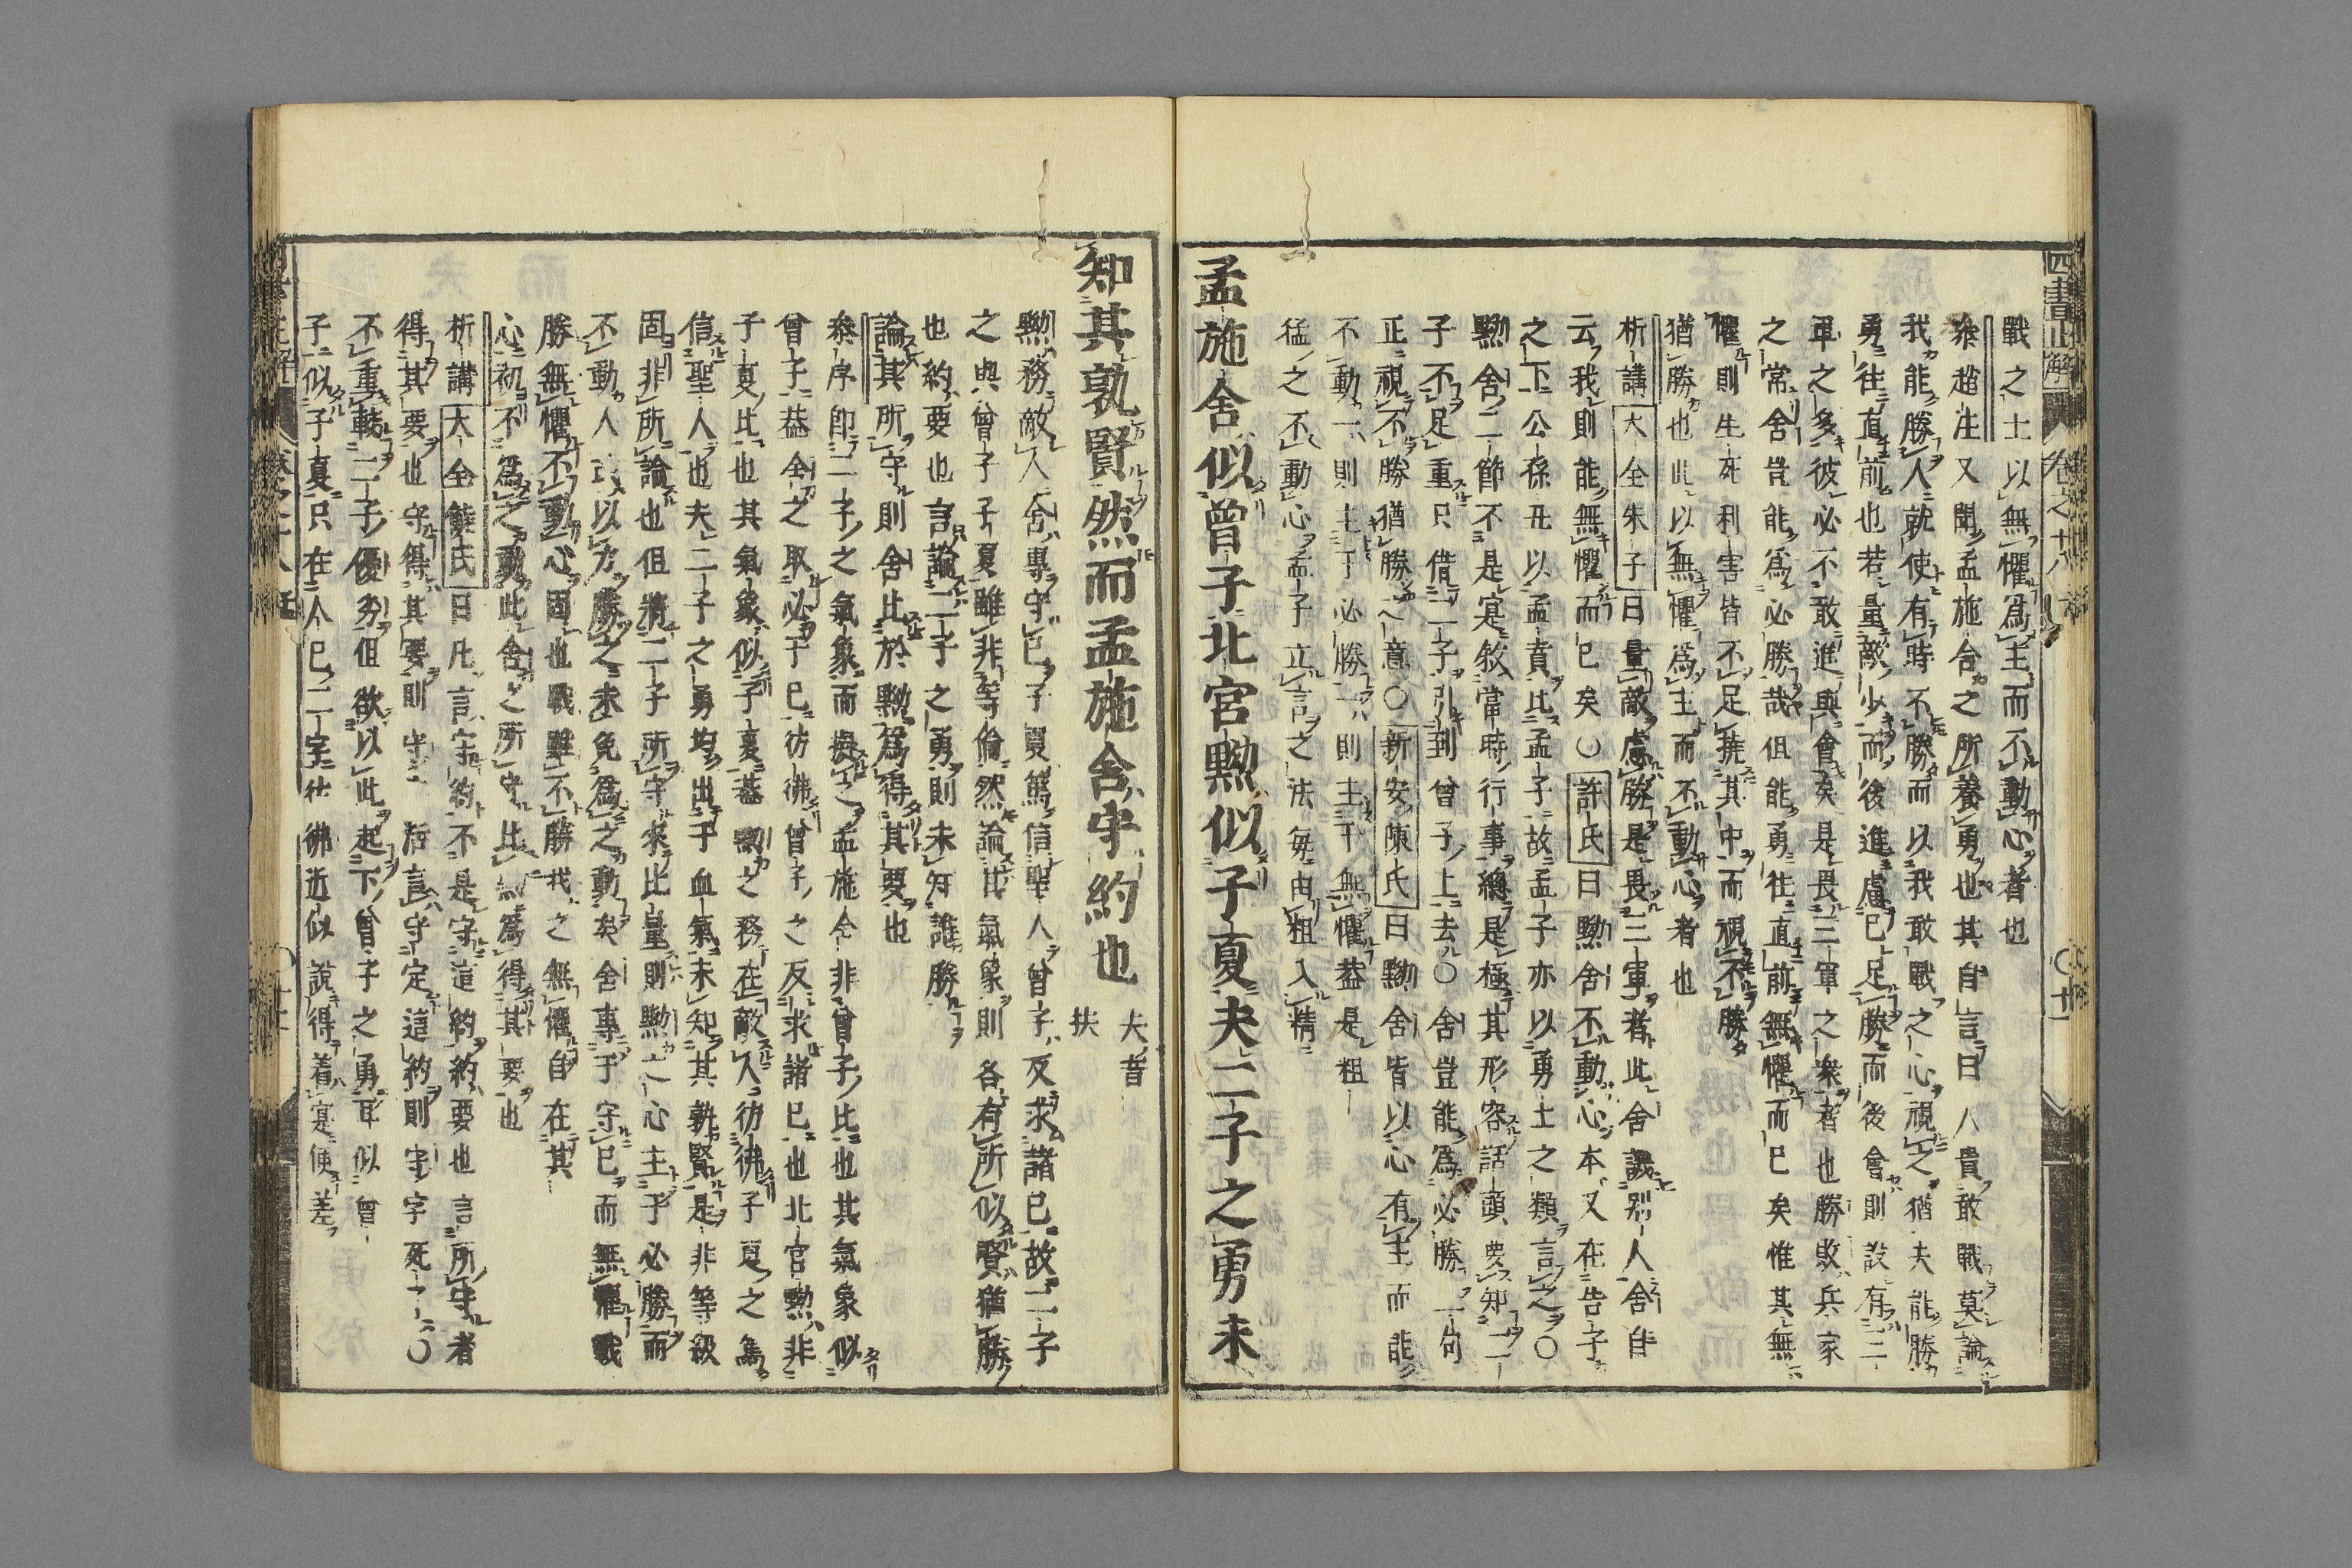 戰之士以無懼爲主而不動心者也
叅趙注又聞孟施舍之所養勇也其自言曰人貴敢戰莫論
我能勝人就使有時不勝而以我敢戰之心視之猶夫能勝
勇往直前也若量敵少而後進慮已足勝而後會則設有三
軍之多彼必不敢進與會矣是畏三軍之衆者也勝敗兵家
之常舍豈能爲必勝哉但能勇往直前無懼而已矣惟其無
懼則生死利害皆不足撓其中而視不勝
猶勝也此以無懼爲主而不動心者也
析講大全朱子曰量敵慮勝是畏三軍者此舍譏别人舍自
云我則能無懼而已矣○許氏曰黝舍不動心本又在告子
之下公孫丑以孟賁比孟子故孟子亦以勇士之類言之○
黝舍二節不是寔敘當時行事總是極其形容話頭要知二
子不足重只借二子引到曾子上去○舍豈能爲必勝一句
正視不勝猶勝之意○新安陳氏曰黝舍皆以心有主而能
不動一則主于必勝一則主于無懼葢是粗
猛之不動心孟子立言之法每由粗入精
孟施舍似曾子北宮黝似子夏夫二子之勇未
知其孰賢然而孟施舍守約也
夫音
扶
黝務敵人舍專守已子夏篤信聖人曾子反求諸已故二子
之與曾子子夏雖非等倫然論其氣象則各有所似賢猶勝
也約要也言論二子之勇則未知誰勝
論其所守則舍比於黝爲得其要也
叅序卽二子之氣象而擬之孟施舍非曾子比也其氣象似
曾子葢舍之取必于已彷彿曾子之反求諸已也北宮黝非
子夏比也其氣象似子夏葢黝之務在敵人彷彿子夏之篤
信聖人也夫二子之勇均出于血氣未知其孰賢是非等級
固非所論也但將二子所守來比量則黝之心主于必勝而
不動人或以力勝之未免爲之動矣舍專于守已而無懼戰
勝無懼不動心固也戰雖不勝我之無懼自在其
心初不爲之動此舍之所守比黝爲得其要也
析講大全饒氏曰凡言守約不是守這約約要也言所守者
得其要也守得其要則守之后言守定這約則守字死了○
不重較二子優劣但欲以此起下曾子之勇耳似曾
子似子夏只在人已二字上彷彿近似說得着寔便差
四書正解
卷之十八
○十一